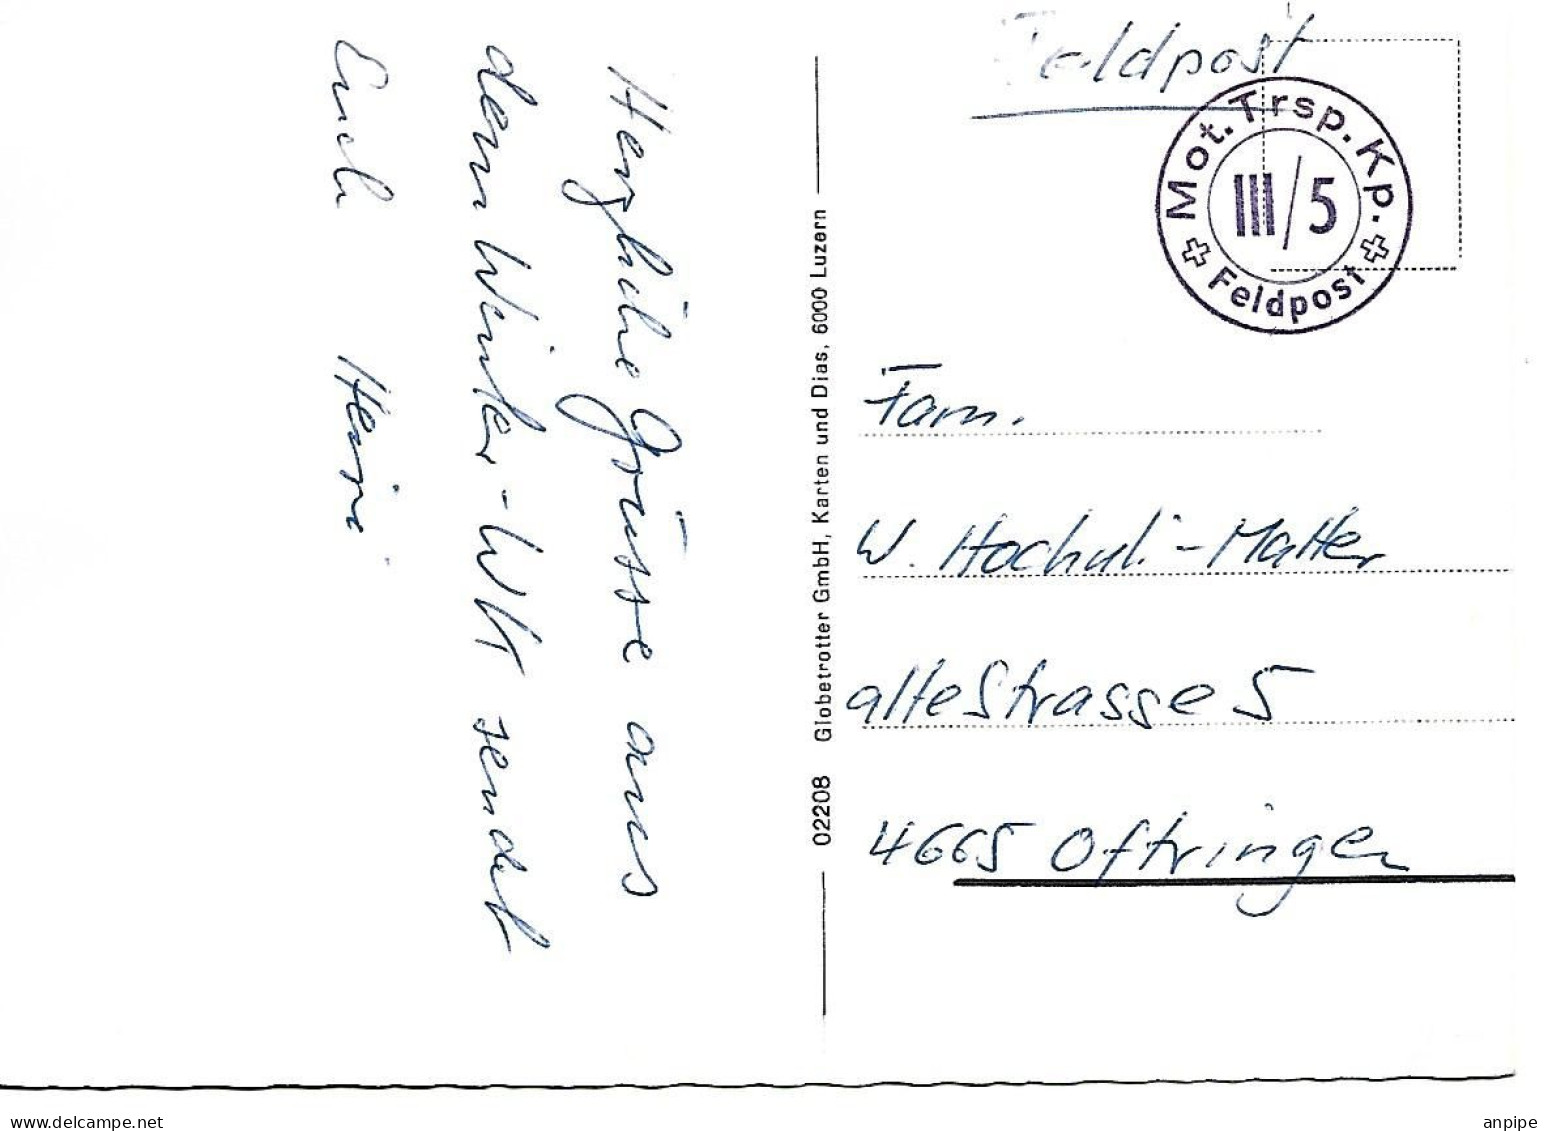 Herzliche Grüsse aus
dem Winter-WK sendet
Euch Heiri
02208 Globetrotter GmbH, Karten und Dias, 6000 Luzern
Feldpost
Mot. Trsp. Kp.
III/5
Feldpost
Fam.
W. Hochuli-Matter
alte Strasse 5
4665 Oftringen
www.delcampe.net
anpipe